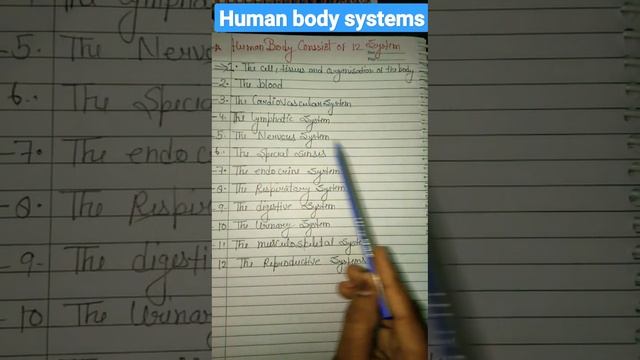 Human body systems
Human Body Consist of 12 System
1. The cell, tissues and organisation of the body
2. The blood
3. The Cardiovascular System
4. The lymphatic System
5. The Nervous System
6. The Special Senses
7. The endocrine System
8. The Respiratory System
9 The digestive System
10 The Urinary System
11 The musculoskeletal System
12 The Reproductive Systems